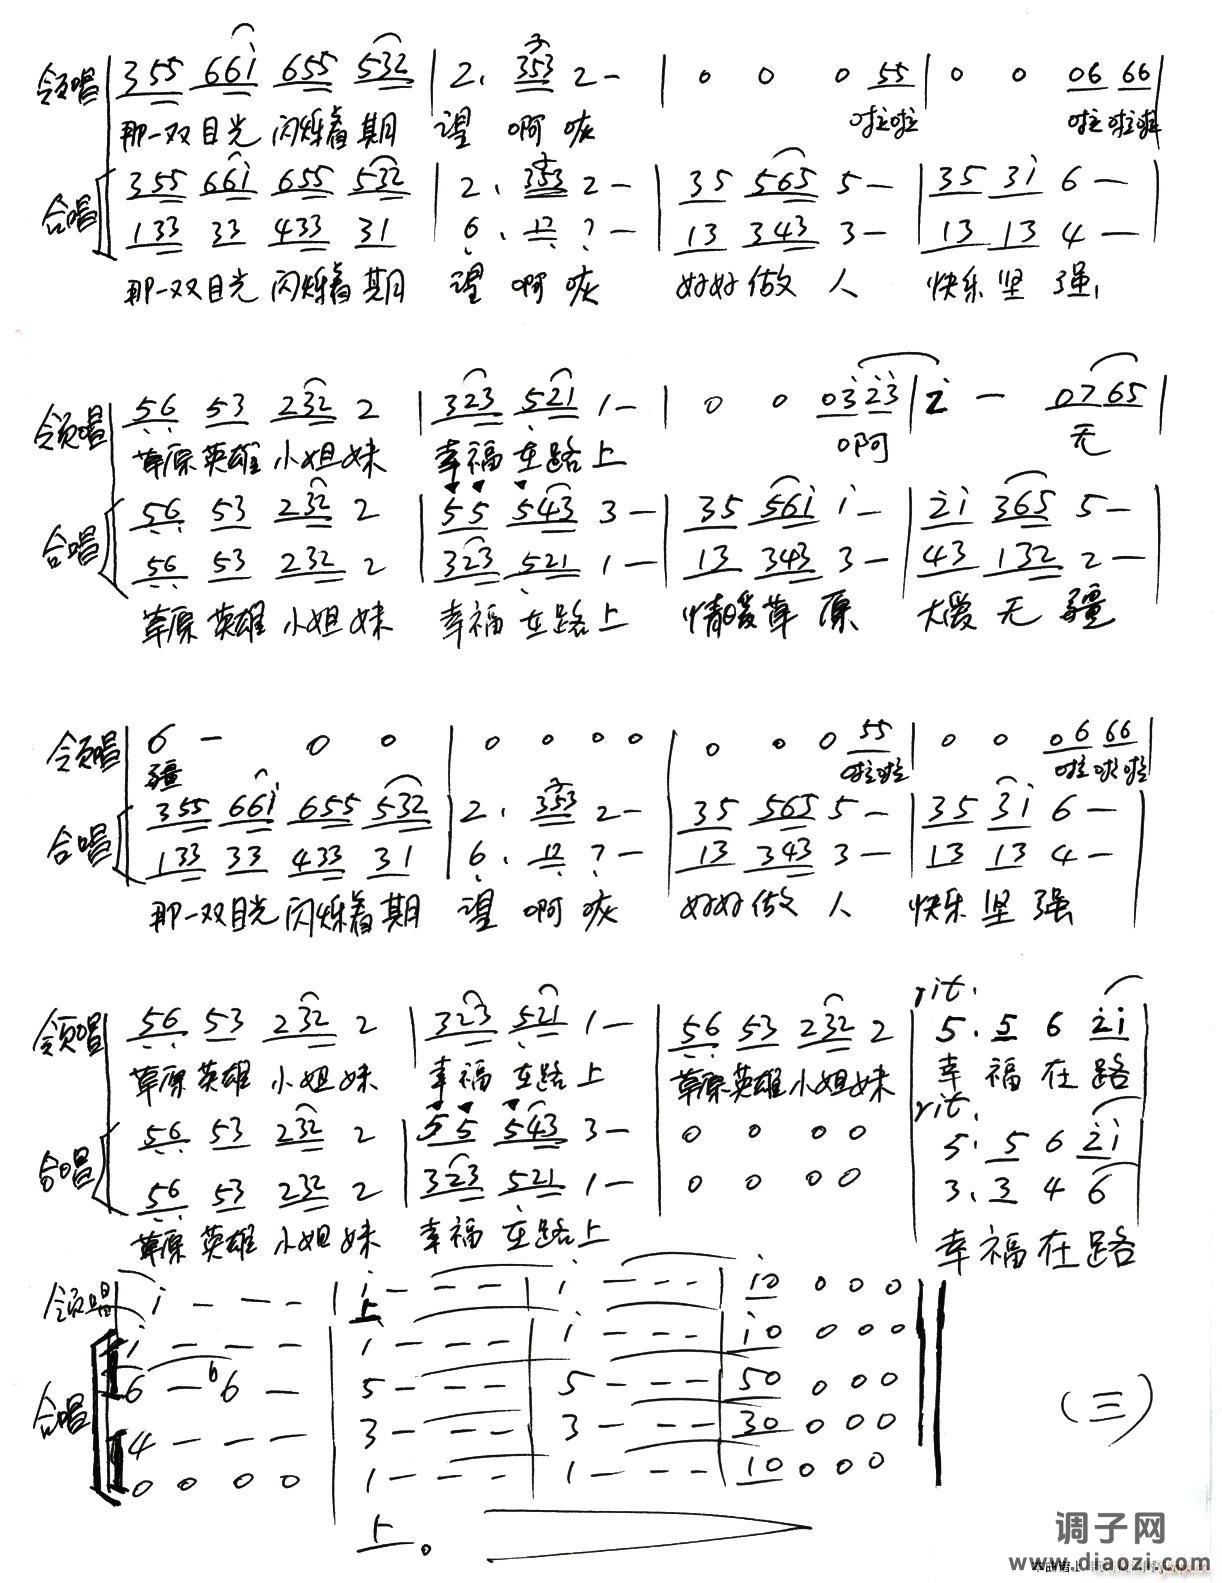 领唱 355 66i 655 532 | 2. 353 2 — | 0 0 0 55 | 0 0 06 66 |
那一双目光 闪烁着期 望 啊 唉 啦啦 啦啦啦
合唱 355 66i 655 532 | 2. 353 2 — | 35 565 5 — | 35 3i 6 — |
133 33 433 31 | 6. 12 7 — | 13 343 3 — | 13 13 4 — |
那一双目光 闪烁着期 望 啊 唉 好好做 人 快乐坚 强,
领唱 56 53 232 2 | 323 521 1 — | 0 0 03̇2̇3̇ | 2̇ — 0765 |
草原英雄 小姐妹 幸福在路上 啊 无
合唱 56 53 232 2 | 55 543 3 — | 35 56i i — | 2̇i 365 5 — |
56 53 232 2 | 323 521 1 — | 13 343 3 — | 43 132 2 — |
草原 英雄 小姐 妹 幸福 在路上 情暖草 原 大爱无 疆
领唱 6 — 0 0 | 0 0 0 0 | 0 0 0 55 | 0 0 06 66 |
疆 啦啦 啦啦啦
合唱 355 66i 655 532 | 2. 353 2 — | 35 565 5 — | 35 3i 6 — |
133 33 433 31 | 6. 12 7 — | 13 343 3 — | 13 13 4 — |
那一双目光 闪烁着期 望 啊 唉 好好做 人 快乐坚 强
rit.
领唱 56 53 232 2 | 323 521 1 — | 56 53 232 2 | 5. 5 6 2̇i |
草原 英雄 小姐妹 幸福 在路上 草原英雄小姐妹 幸 福 在 路
rit.
合唱 56 53 232 2 | 55 543 3 — | 0 0 0 0 | 5. 5 6 2̇i |
56 53 232 2 | 323 521 1 — | 0 0 0 0 | 3. 3 4 6 |
草原 英雄 小姐 妹 幸福 在路上 幸福在路
领唱 i — — — | i — — — | i — — — | i0 0 0 0
上
合唱 i — — — | 1 — — — | i — — — | i0 0 0 0
6 — 6 6 — | 5 — — — | 5 — — — | 50 0 0 0
4 — — — | 3 — — — | 3 — — — | 30 0 0 0
0 0 0 0 | 1 — — — | 1 — — — | 10 0 0 0
上。
(三)
调子网
www.diaozi.com